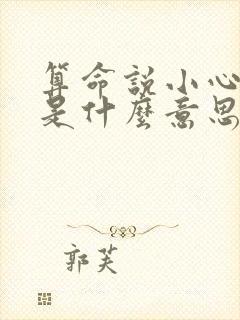 算命說小心
是什麼意思
郭芙